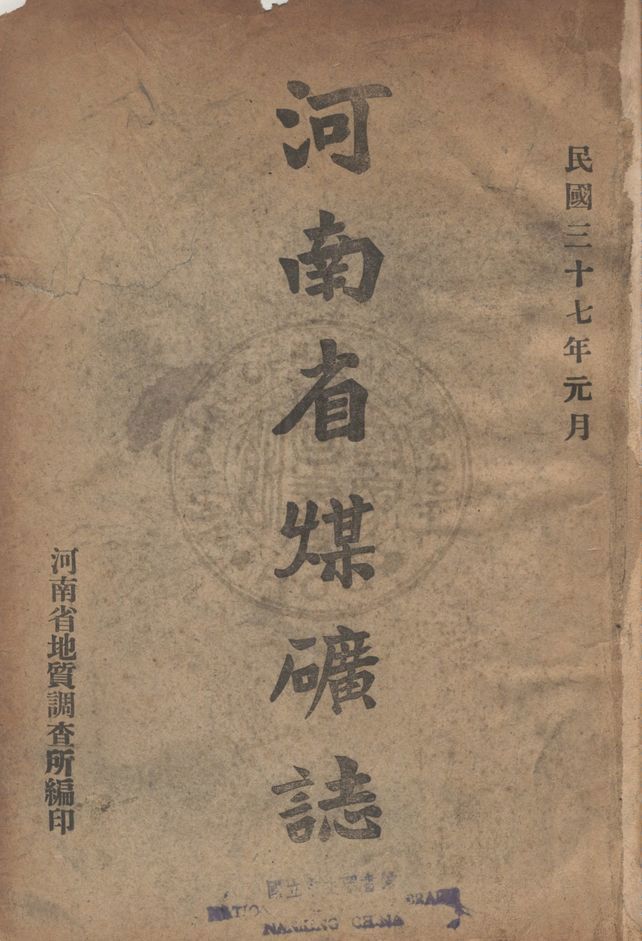 民國三十七年元月
河南省煤礦誌
河南省地質調查所編印
NANKING CHINA